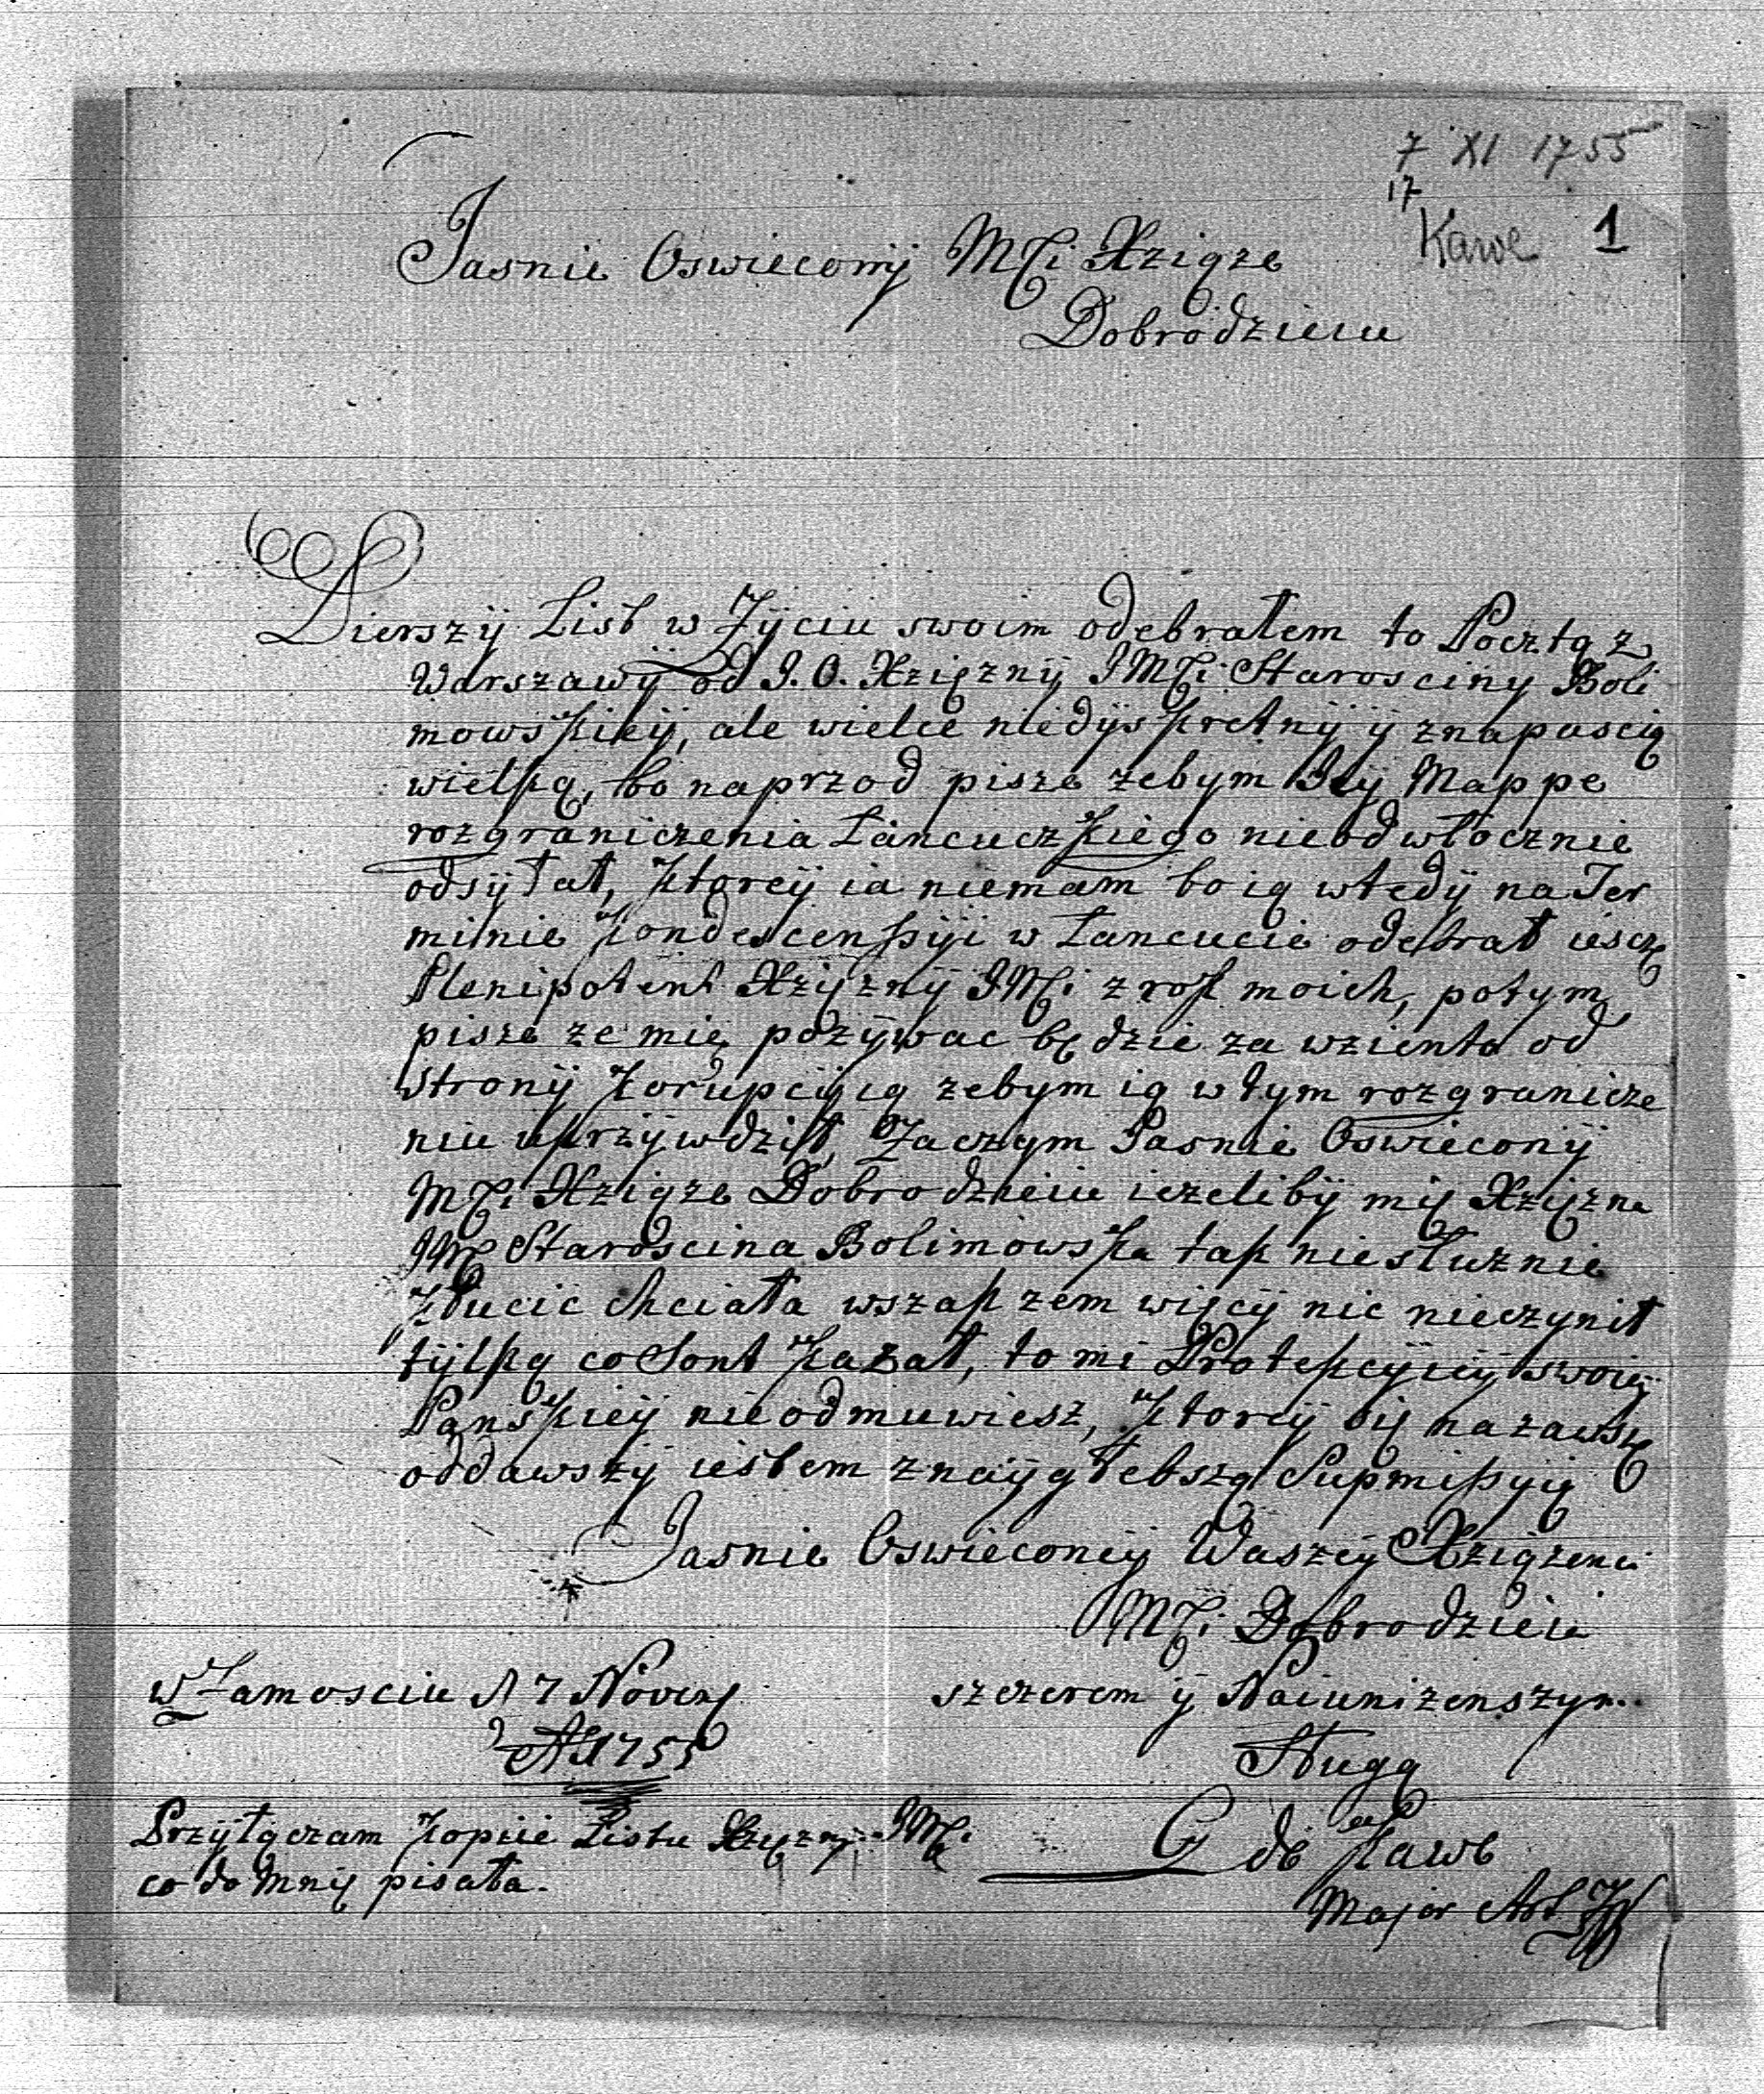 7 XI 1755
17
Kawe 1
Jasnie Oswiecony MCi Xziąze
Dobrodzieiu
Pierszy List w Zyciu swoim odebrałem to Pocztą z
Warszawy od J. O. Xzięzny JMCi Starosciny Boli
mowskiey, ale wielce niedyskretny y znapascią
wielką, bo naprzod pisze zebym Jey Mappe
rozgraniczenia Łancuczkiego nieodwłocznie
odsyłał, ktorey ia niemam bo ią wtedy na Ter
minie kondescenssyi w Łancucie odebrał iescze
Plenipotent Xzięzny JMCi z rok moich, potym
pisze ze mię pozywac będzie za wzienta od
strony korupcyią zebym ią w tym rozgranicze
niu ukrzywdził, Zaczym Jasnie Oswiecony
MCi Xziąze Dobrodzieiu iezeliby mię Xzięzna
JMC Staroscina Bolimowska tak niesłuznie
kłucic chciała wszak zem więcy nic nieczynił
tylką co Sont kazał, to mi Protekcyiey swoiey
Panskiey nieodmuwiesz, ktorey się nazawsze
oddawszy iestem znaygłebszą Supmissyią
Jasnie Oswieconey Waszey Xziązenci
MCi Dobrodzieia
w Zamosciu d 7 Novem
A 1755
szczerem y Naiunizenszym
Sługą
G de Kawe
Major Art
Przyłączam kopiie Listu Xzęzny JMCi
co do mnię pisała.